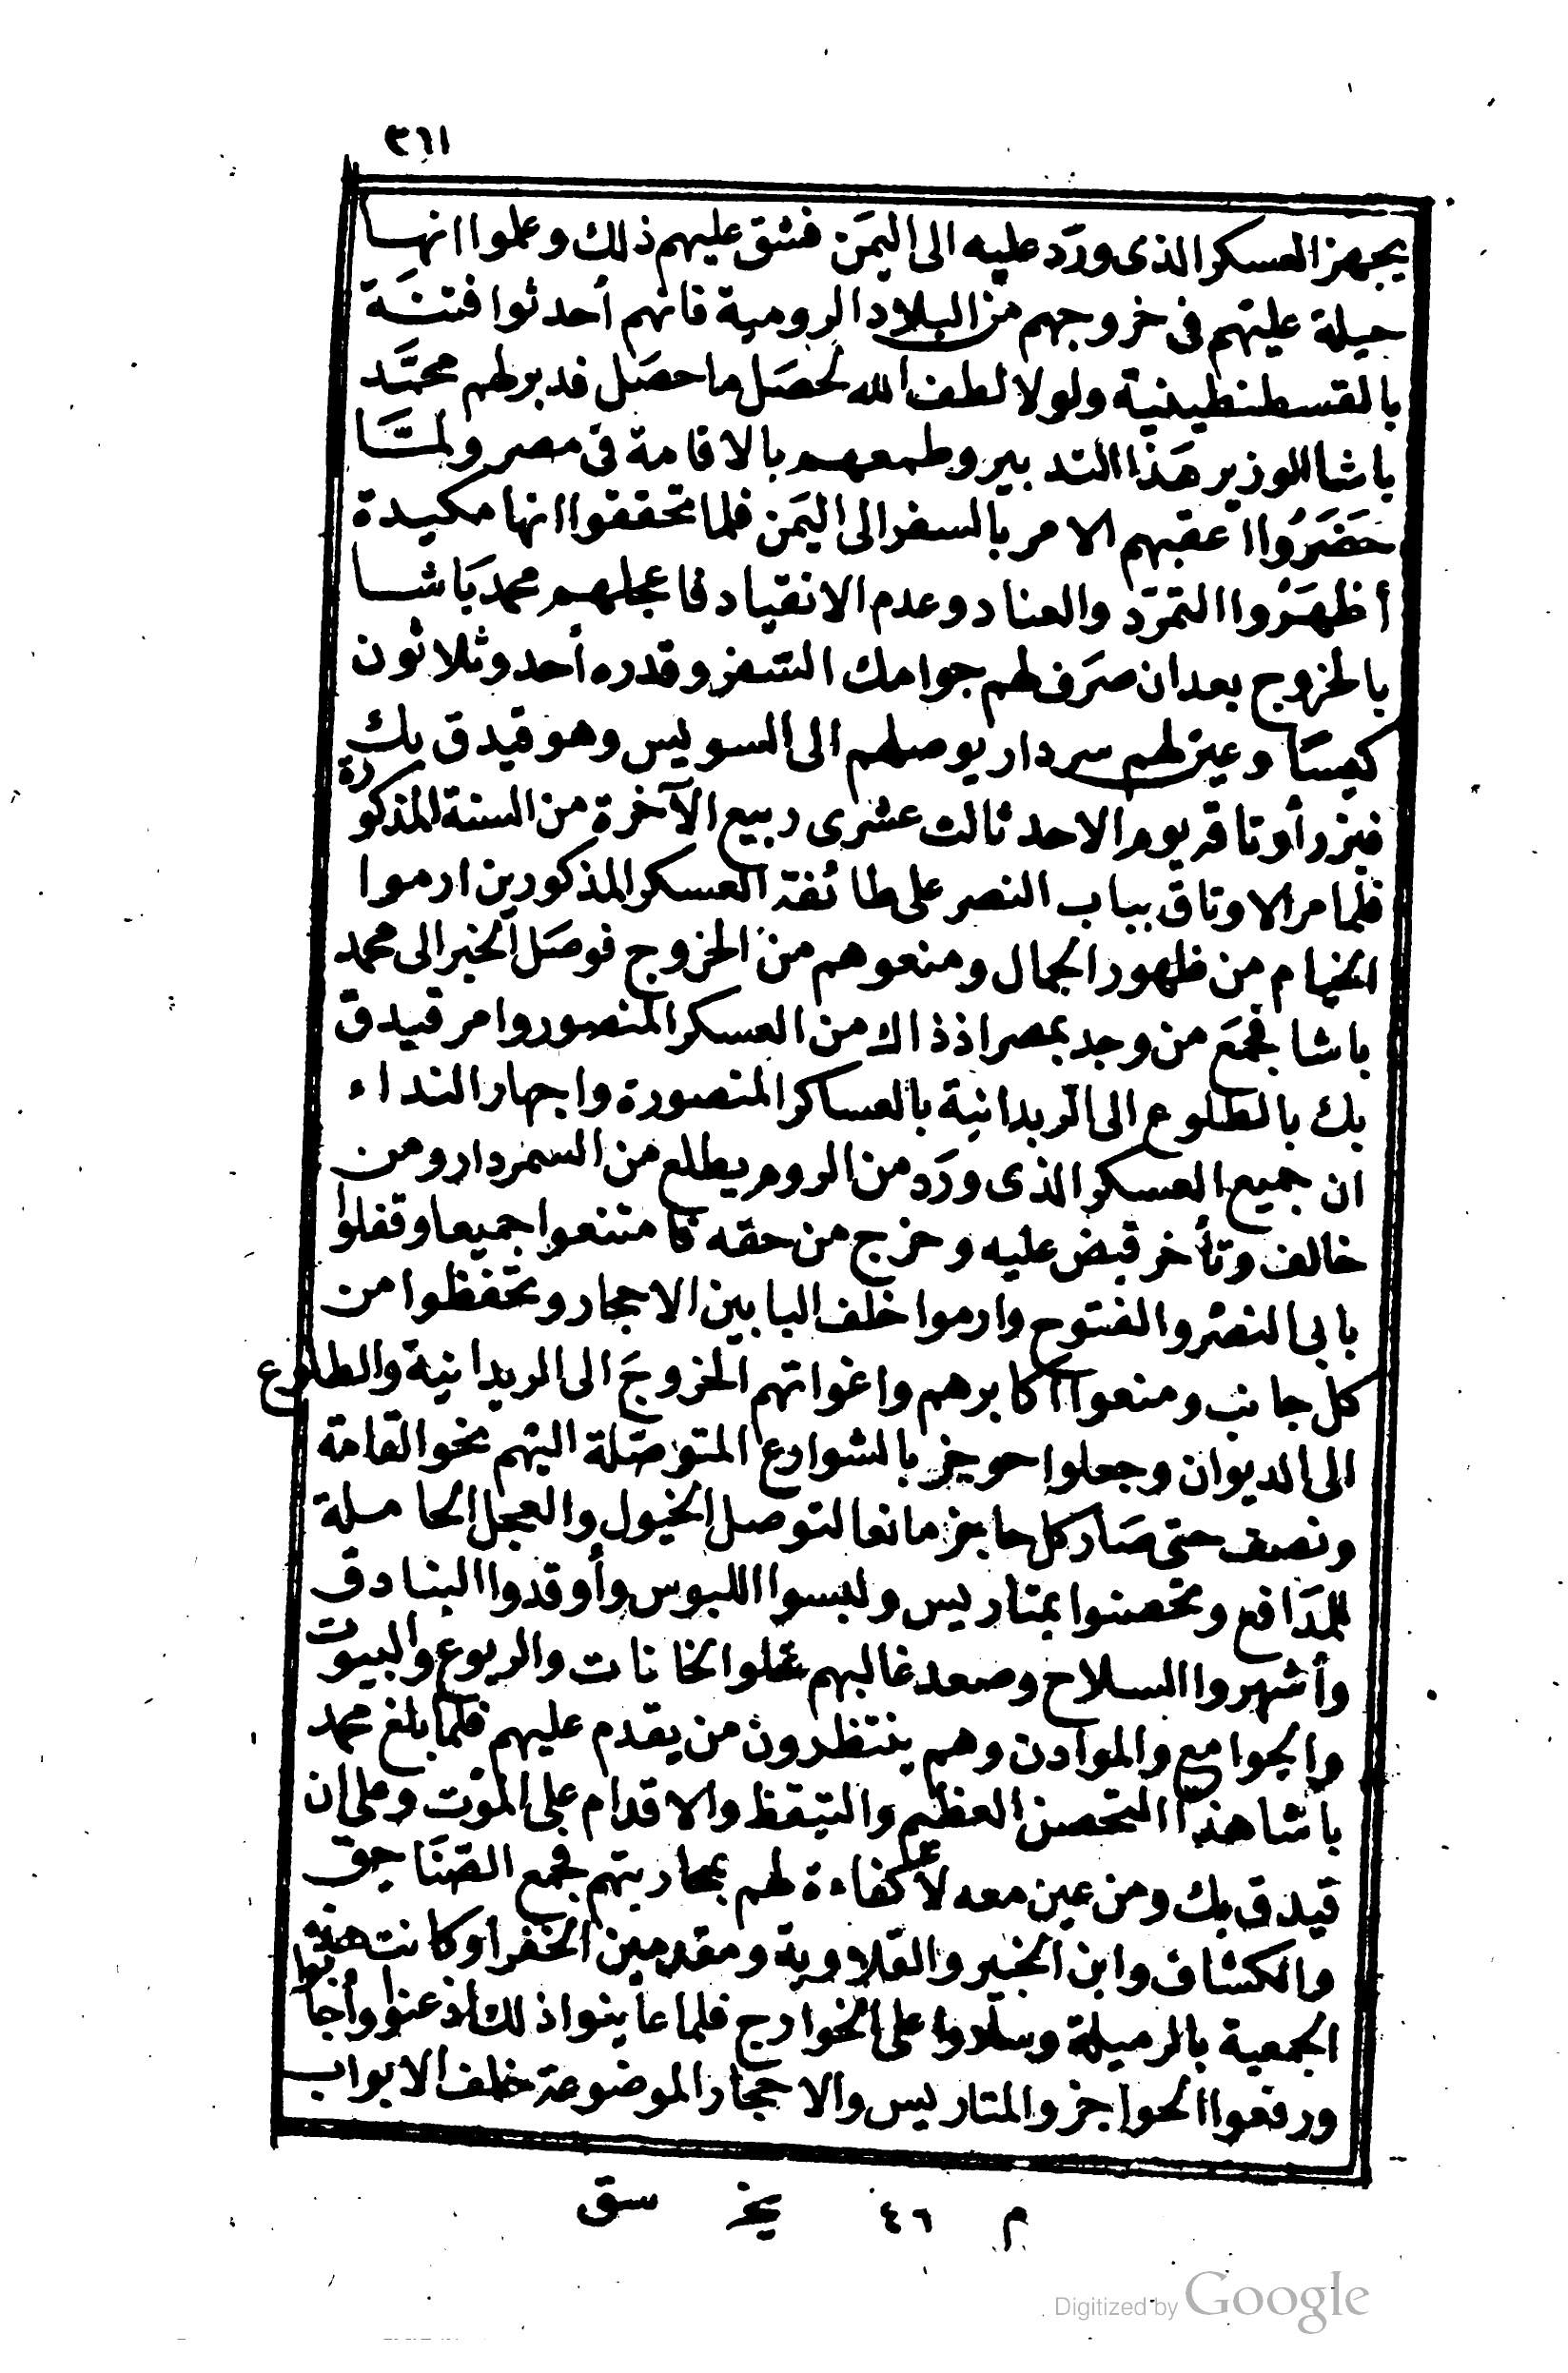 ٣٦١
يجهز العسكر الذى ورَد عليه الى اليمَن فشق عليهم ذلك وعلموا انها
حيلة عليهم فى خروجهم من البلاد الرومية فانهم أحدثوا فتنَة
بالقسطنطينية ولولا لطف الله لحصَل ما حصَل فدبر لهم محمَّد
باشا الوزير هَذا التدبير وطمعهم بالاقامة فى مصر ولمَّا
حَضَرُوا اعقبهم الامر بالسفر الى اليَمن فلما تحققوا انها مكيدة
أظهَرُوا التمرّد والعناد وعدم الانقياد فاعجلهم محمد بَاشا
بالخروج بعد ان صرَف لهم جوامك السَّفر وقدره أحد وثلاثون
كيسًا وعين لهم سردار يوصلهم الى السويس وهو قيدق بك
فبرز أوتاقه يوم الاحد ثالث عشرى ربيع الآخرة من السنة المذكورة
فلما مر الاوتاق بباب النصر على طائفة العسكر المذكورين ارموا
الخيام من ظهور الجمال ومنعوهم من الخروج فوصَل الخبر الى محمد
باشا فجمَع من وجد بمصر اذ ذاك من العسكر المنصور وامر قيدق
بك بالطلوع الى الريدانية بالعساكر المنصورة واجهار النداء
ان جميع العسكر الذى ورَد من الروم يطلع من السردار ومن
خالف وتأخر قبض عليه وخرج من حقه فامتنعوا جميعا وقفلوا
بابى النصر والفتوح وارموا خلف البابين الاحجار وتحفظوا من
كل جانب ومنعوا اكابرهم واغواتهم الخروجَ الى الريدانية والطلوع
الى الديوان وجعلوا حويجز بالشوارع المتوصّلة اليهم نحو القامة
ونصف حتى صَار كل حاجز مانعا لتوصل الخيول والعجل الحاملة
للمدَافع وتحصنوا بمتاريس ولبسوا اللبوس وأوقدوا البنادق
وأشهروا السلاح وصعد غالبهم علوا الخانات والربوع والبيوت
والجوامع والموادن وهم ينتظرون من يقدم عليهم فلما بلغ محمد
باشا هذا التحصن العظيم والتيقظ والاقدام على الموت وعلى ان
قيدق بك ومن عين معه لا كفاءة لهم بمحاربتهم فجمع الصنَاجق
والكشاف وابن الخبير والقلاوية ومقدمين الخفرا وكانت هذه
الجمعية بالرميلة وسلدوا على الخوارج فلما عاينوا ذلك اذعنوا وأجابوا
ورفعوا الحواجز والمتاريس والاحجار الموضوعة خلف الابواب
م ٤٦ سق
Digitized by Google